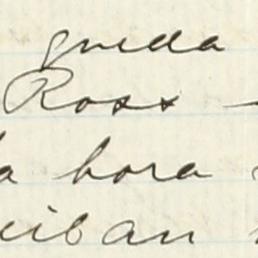 gueda
Ross -
a hora
eiban